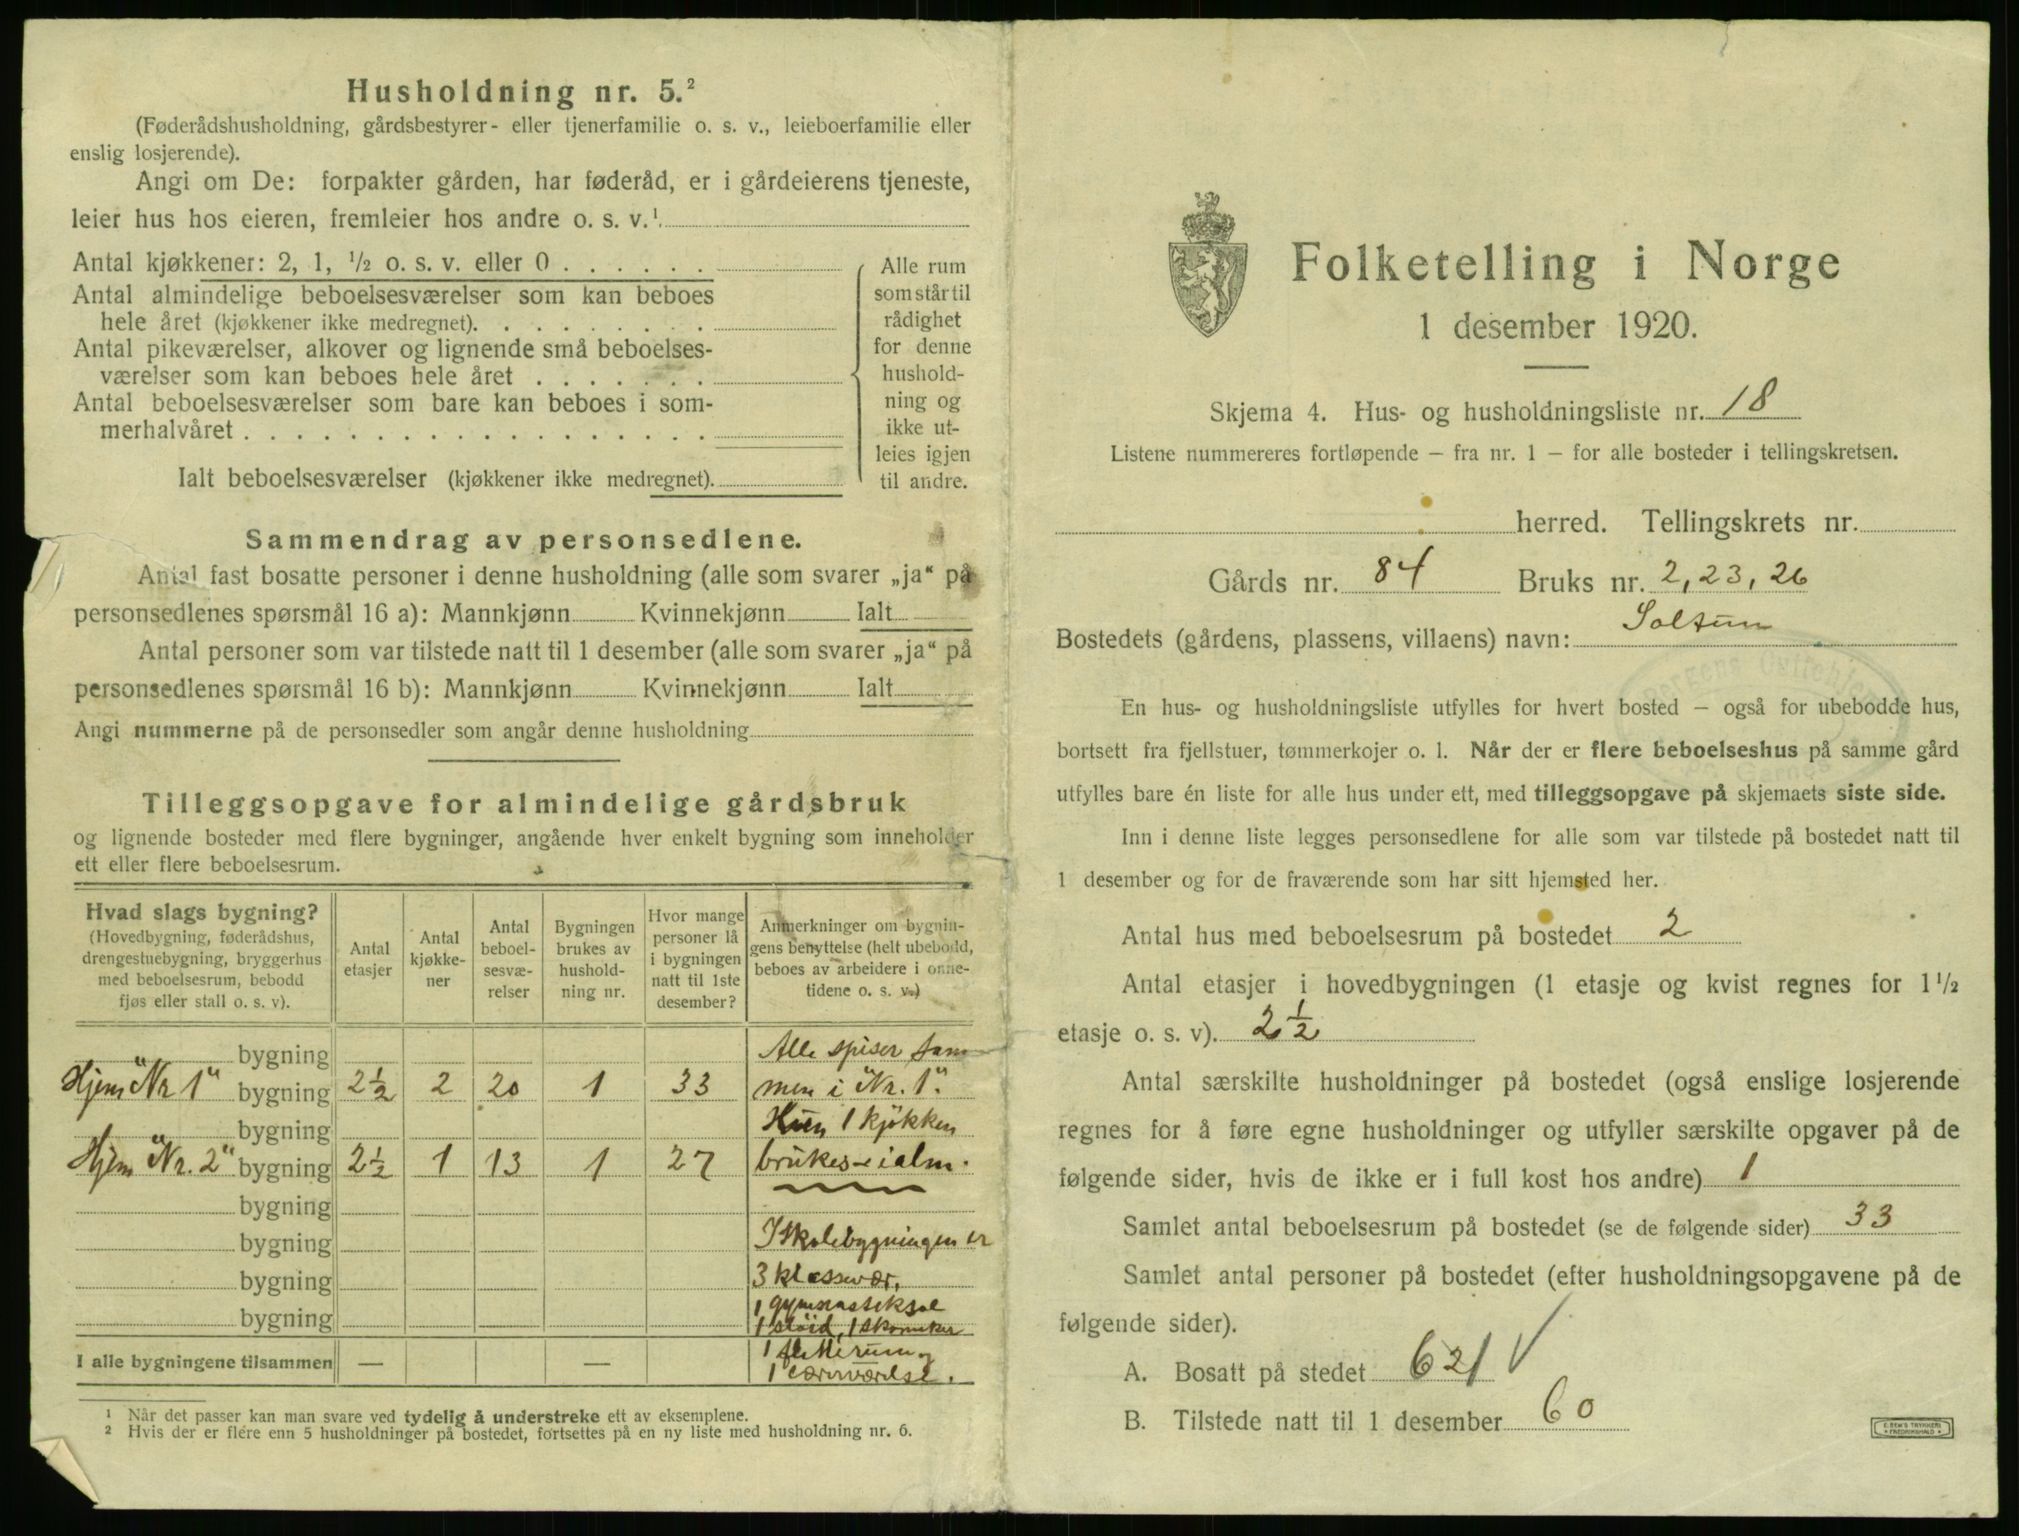 Husholdning nr. 5.²
(Føderådshusholdning, gårdsbestyrer- eller tjenerfamilie o. s. v., leieboerfamilie eller
enslig losjerende).
Angi om De: forpakter gården, har føderåd, er i gårdeierens tjeneste,
leier hus hos eieren, fremleier hos andre o. s. v.¹
Antal kjøkkener: 2, 1, ½ o. s. v. eller 0
Antal almindelige beboelsesværelser som kan beboes
hele året (kjøkkener ikke medregnet).
Antal pikeværelser, alkover og lignende små beboelses-
værelser som kan beboes hele året
Antal beboelsesværelser som bare kan beboes i som-
merhalvåret
Ialt beboelsesværelser (kjøkkener ikke medregnet).
Alle rum
som står til
rådighet
for denne
hushold-
ning og
ikke ut-
leies igjen
til andre.
Sammendrag av personsedlene.
Antal fast bosatte personer i denne husholdning (alle som svarer „ja“ på
personsedlenes spørsmål 16 a): Mannkjønn Kvinnekjønn Ialt
Antal personer som var tilstede natt til 1 desember (alle som svarer „ja“ på
personsedlenes spørsmål 16 b): Mannkjønn Kvinnekjønn Ialt
Angi nummerne på de personsedler som angår denne husholdning
Tilleggsopgave for almindelige gårdsbruk
og lignende bosteder med flere bygninger, angående hver enkelt bygning som inneholder
ett eller flere beboelsesrum.
Hvad slags bygning?
(Hovedbygning, føderådshus,
drengestuebygning, bryggerhus
med beboelsesrum, bebodd
fjøs eller stall o. s. v).
Antal
etasjer
Antal
kjøkke-
ner
Antal
beboel-
sesvæ-
relser
Bygningen
brukes av
hushold-
ning nr.
Hvor mange
personer lå
i bygningen
natt til 1ste
desember?
Anmerkninger om bygnin-
gens benyttelse (helt ubebodd,
beboes av arbeidere i onne-
tidene o. s. v.)
bygning Alle spiser sam
Hjem "Nr 1" bygning 2½ 2 20 1 33 men i "Nr. 1".
bygning 1 kjøkken
Hjem "Nr. 2" bygning 2½ 1 13 1 27 brukes i alm.
bygning
bygning I Skolebygningen er
bygning 3 klassevær.
bygning 1 gymnastiksal
1 sløid, 1 skomaker
I alle bygningene tilsammen — — 1
1 lærerværelse.
¹ Når det passer kan man svare ved tydelig å understreke ett av eksemplene.
² Hvis der er flere enn 5 husholdninger på bostedet, fortsettes på en ny liste med husholdning nr. 6.
Folketelling i Norge
1 desember 1920.
Skjema 4. Hus- og husholdningsliste nr. 18
Listene nummereres fortløpende – fra nr. 1 – for alle bosteder i tellingskretsen.
herred. Tellingskrets nr.
Gårds nr. 84 Bruks nr. 2, 23, 26
Bostedets (gårdens, plassens, villaens) navn: Soltun
En hus- og husholdningsliste utfylles for hvert bosted – også for ubebodde hus,
bortsett fra fjellstuer, tømmerkojer o. l. Når der er flere beboelseshus på samme gård
utfylles bare én liste for alle hus under ett, med tilleggsopgave på skjemaets siste side.
Inn i denne liste legges personsedlene for alle som var tilstede på bostedet natt til
1 desember og for de fraværende som har sitt hjemsted her.
Antal hus med beboelsesrum på bostedet 2
Antal etasjer i hovedbygningen (1 etasje og kvist regnes for 1½
etasje o. s. v). 2½
Antal særskilte husholdninger på bostedet (også enslige losjerende
regnes for å føre egne husholdninger og utfyller særskilte opgaver på de
følgende sider, hvis de ikke er i full kost hos andre) 1
Samlet antal beboelsesrum på bostedet (se de følgende sider) 33
Samlet antal personer på bostedet (efter husholdningsopgavene på de
følgende sider).
A. Bosatt på stedet 62
B. Tilstede natt til 1 desember 60
E. SEM'S TRYKKERI
FREDRIKSHALD